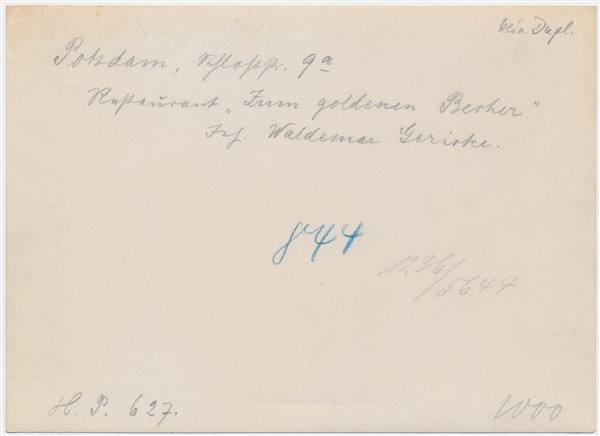 kein Dupl.
Potsdam, Schloßstr. 9a
Restaurant „Zum goldenen Becher"
Inh. Waldemar Gericke.
844
1236/5644
H. P. 627.